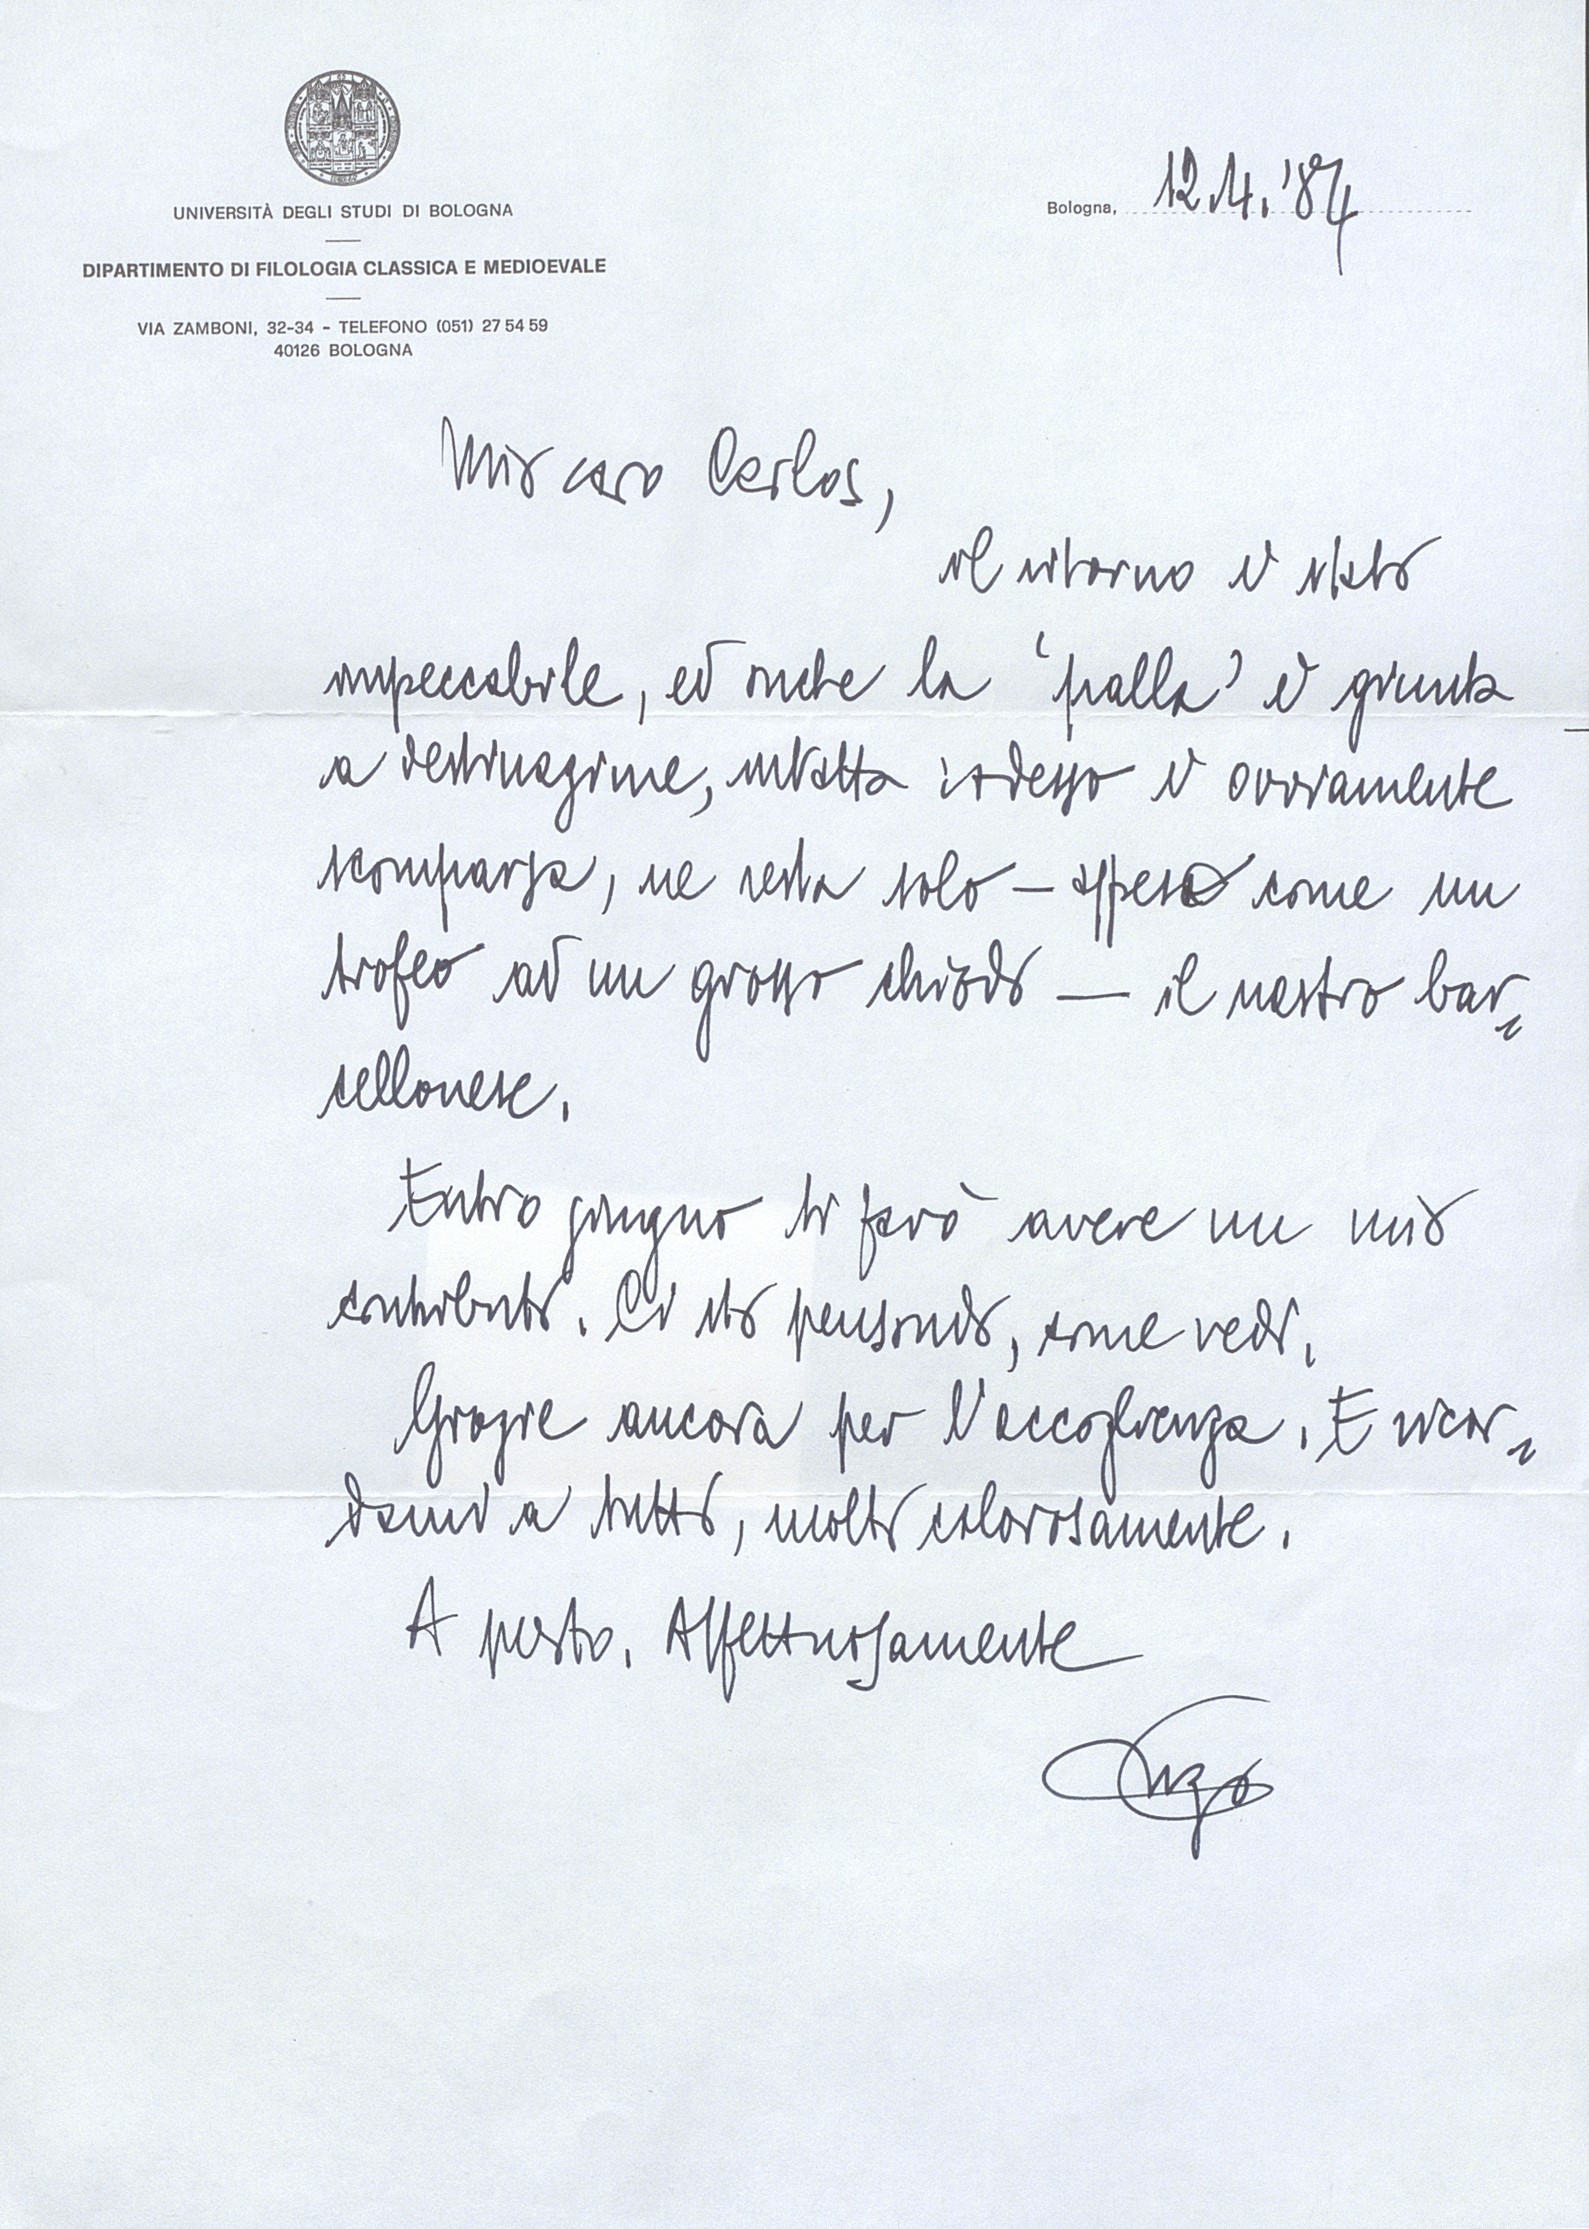 UNIVERSITÀ DEGLI STUDI DI BOLOGNA
DIPARTIMENTO DI FILOLOGIA CLASSICA E MEDIOEVALE
VIA ZAMBONI, 32-34 - TELEFONO (051) 27 54 59
40126 BOLOGNA
Bologna, 12.4.'84
Mio caro Carlos,
il ritorno è stato
impeccabile, ed anche la 'palla' è giunta
a destinazione, intatta: adesso è ovviamente
scomparsa, ne resta solo — appeso come un
trofeo ad un grosso chiodo — il nastro bar-
cellonese.
Entro giugno ti farò avere un mio
contributo. Ci sto pensando, come vedi.
Grazie ancora per l'accoglienza. E ricor-
dami a tutti, molto calorosamente.
A presto. Affettuosamente
Enzo